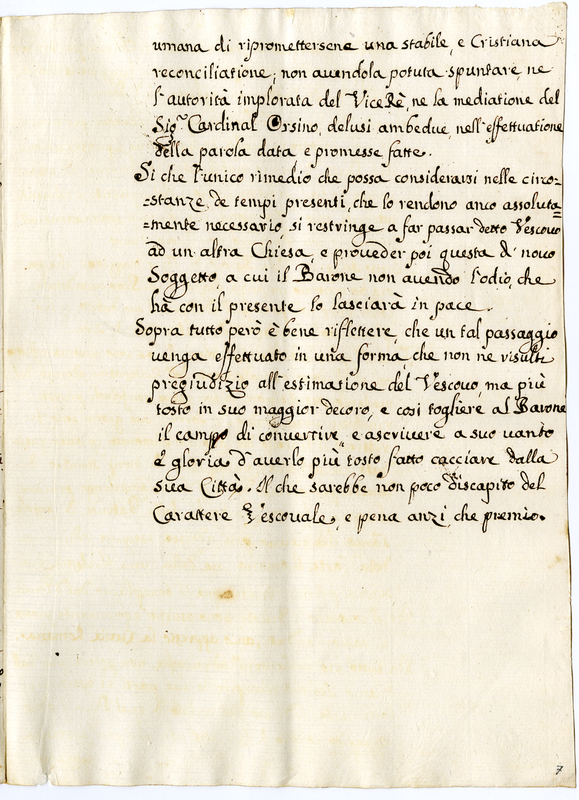 umana di ripromettersene una stabile, e Cristiana
reconciliatione; non auendola potuta spuntare ne
l'autorità implorata del ViceRè, ne la mediatione del
Sig.r Cardinal Orsino, delusi ambedue, nell'effettuatione
della parola data, e promesse fatte.
Si che l'unico rimedio che possa considerarsi nelle circo-
-stanze, de tempi presenti, che lo rendono anco assoluta=
=mente necessario, si restringe a far passar detto Vescouo
ad un altra Chiesa, e proueder poi questa di nouo
Soggetto, a cui il Barone non auendo l'odio, che
hà con il presente lo lasciarà in pace.
Sopra tutto però è bene riflettere, che un tal passaggio
venga effettuato in una forma, che non ne risulti
pregiudizio all'estimatione del Vescouo, ma più
tosto in suo maggior decoro, e così togliere al Barone
il campo di conuertire, e ascriuere a suo uanto
e gloria d'auerlo più tosto fatto cacciare dalla
sua Città. Il che sarebbe non poco discapito del
Carattere Vescouale, e pena anzi, che premio.
7